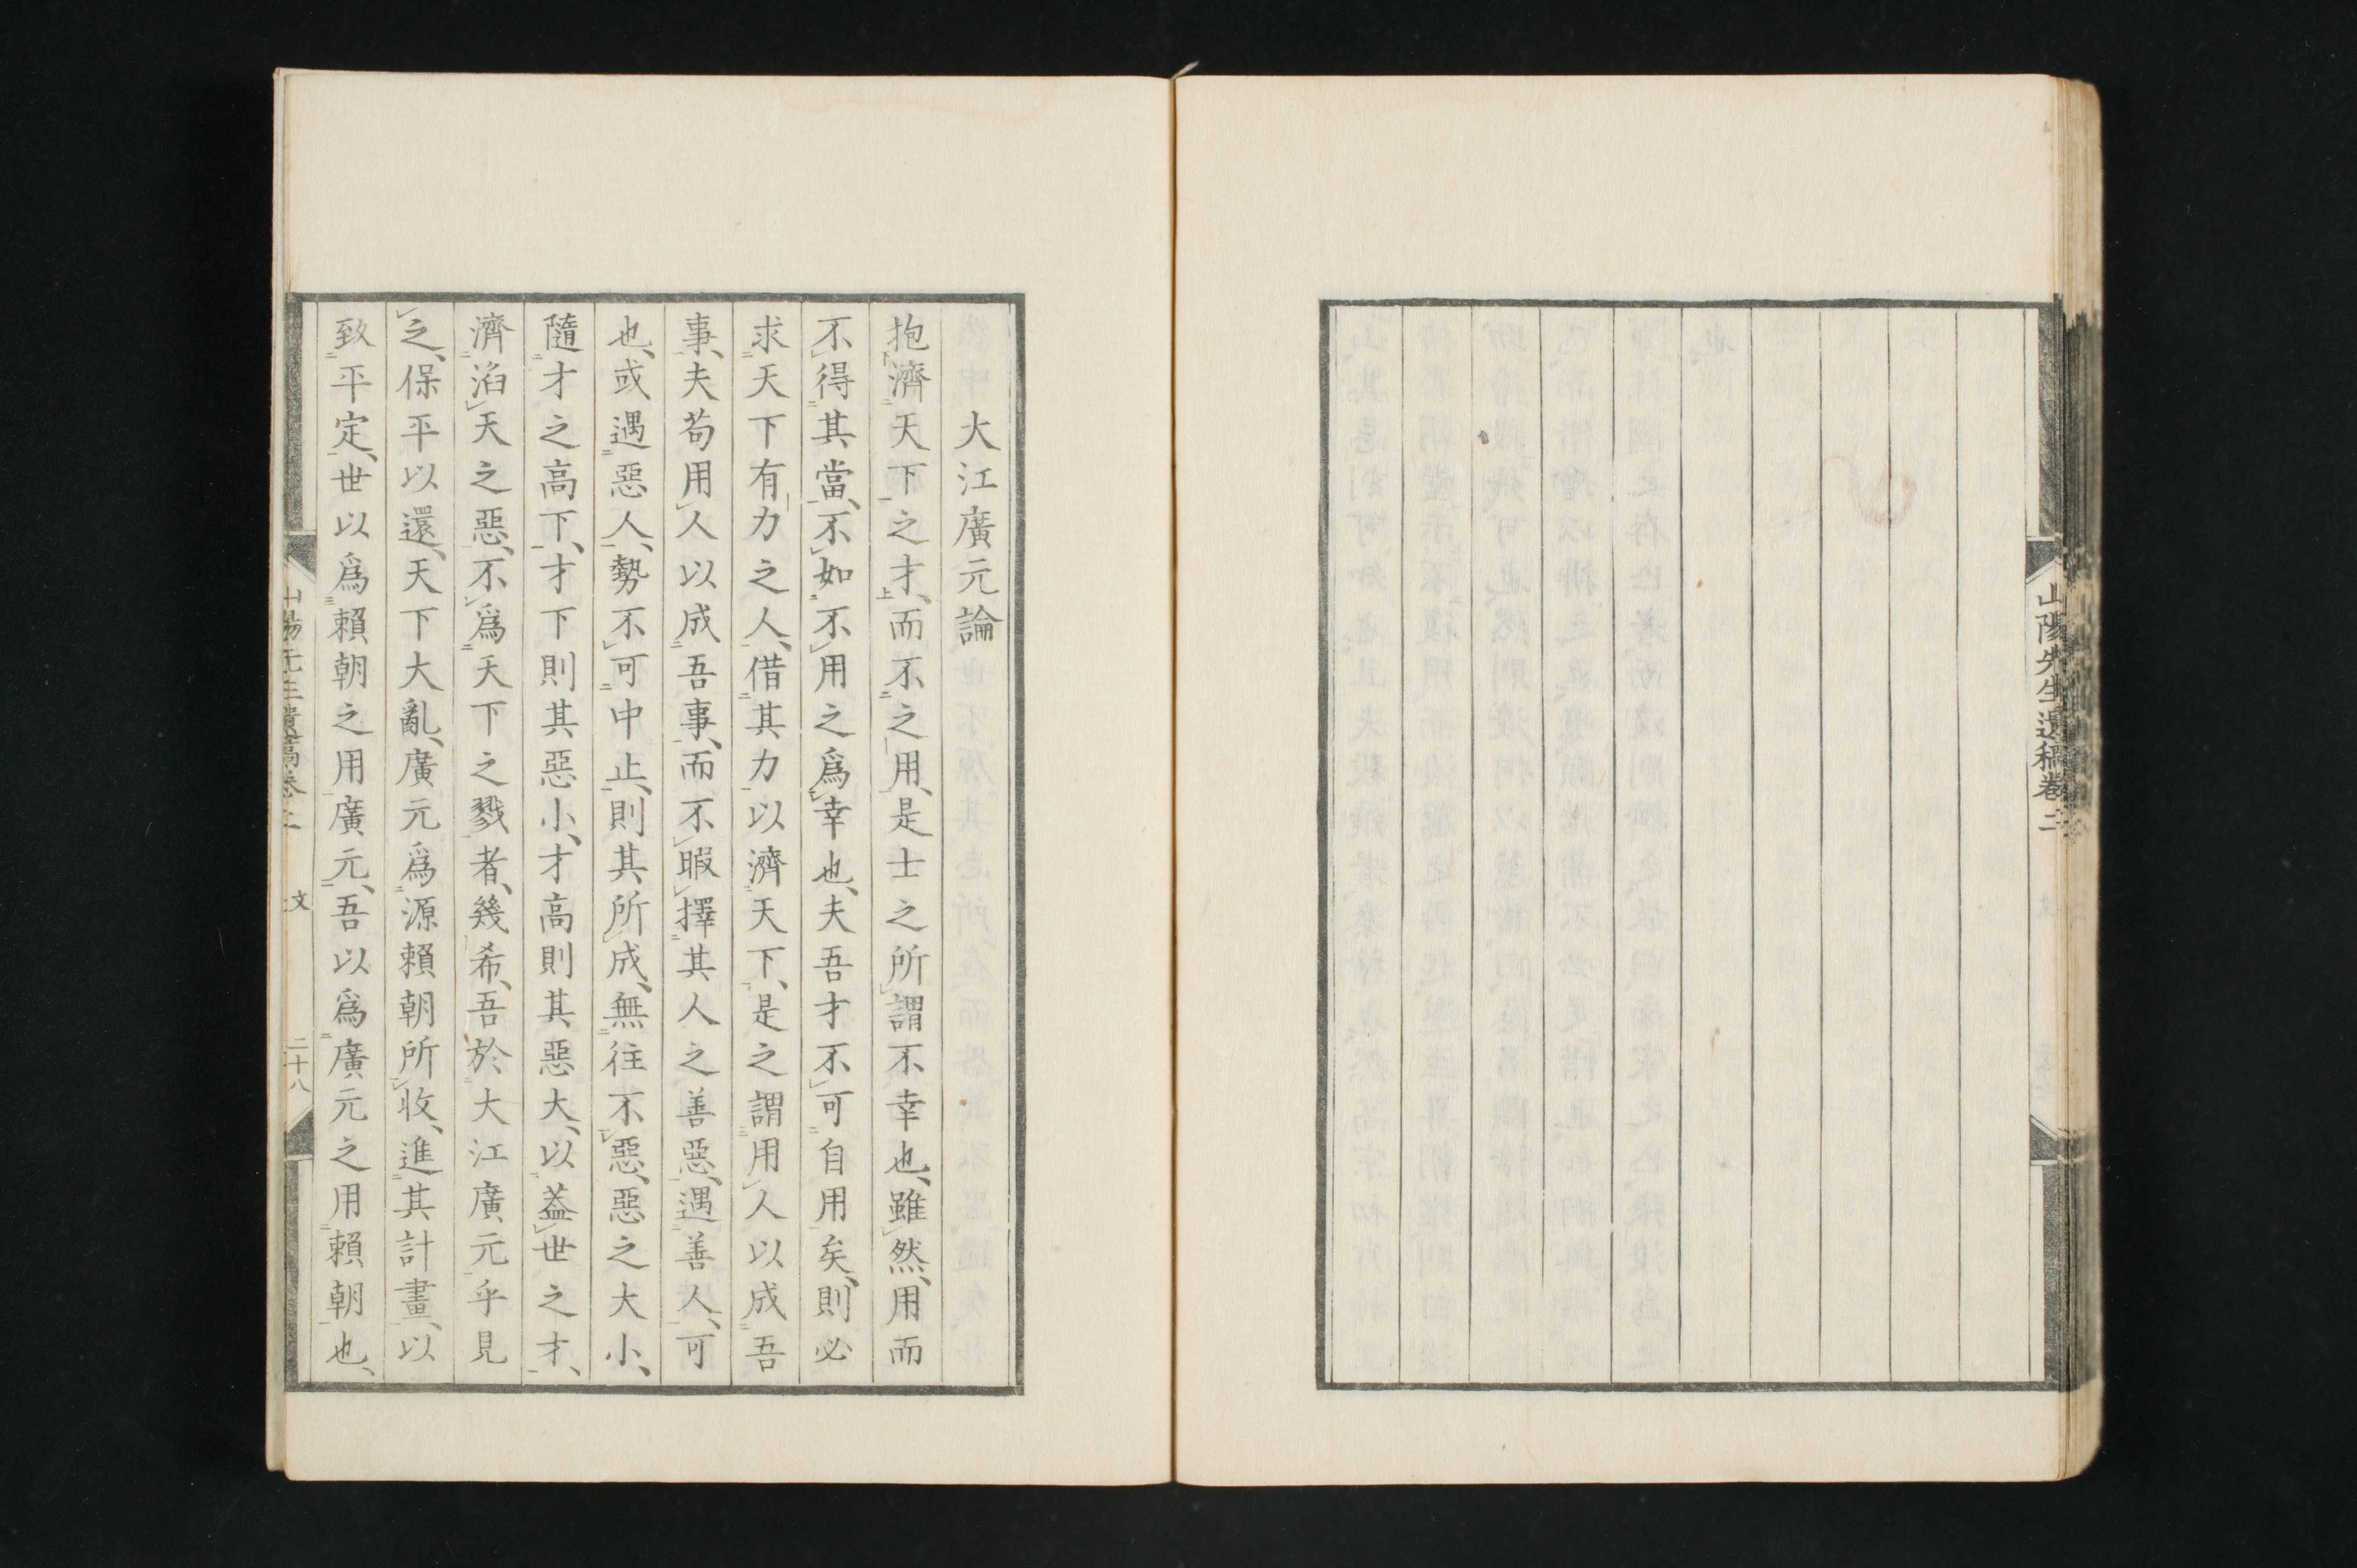 山陽先生遺稿卷二
大江廣元論
抱濟天下之才、而不之用、是士之所謂不幸也、雖然、用而
不得其當、不如不用之爲幸也、夫吾才不可自用矣、則必
求天下有力之人、借其力以濟天下、是之謂用人以成吾
事、夫苟用人以成吾事、而不暇擇其人之善惡、遇善人、可
也、或遇惡人、勢不可中止、則其所成、無往不惡、惡之大小、
隨才之高下、才下則其惡小、才高則其惡大、以蓋世之才、
濟滔天之惡、不爲天下之戮者、幾希、吾於大江廣元乎見
之、保平以還、天下大亂、廣元爲源賴朝所收、進其計畫、以
致平定、世以爲賴朝之用廣元、吾以爲廣元之用賴朝也、
山陽先生遺稿卷二 文 二十八